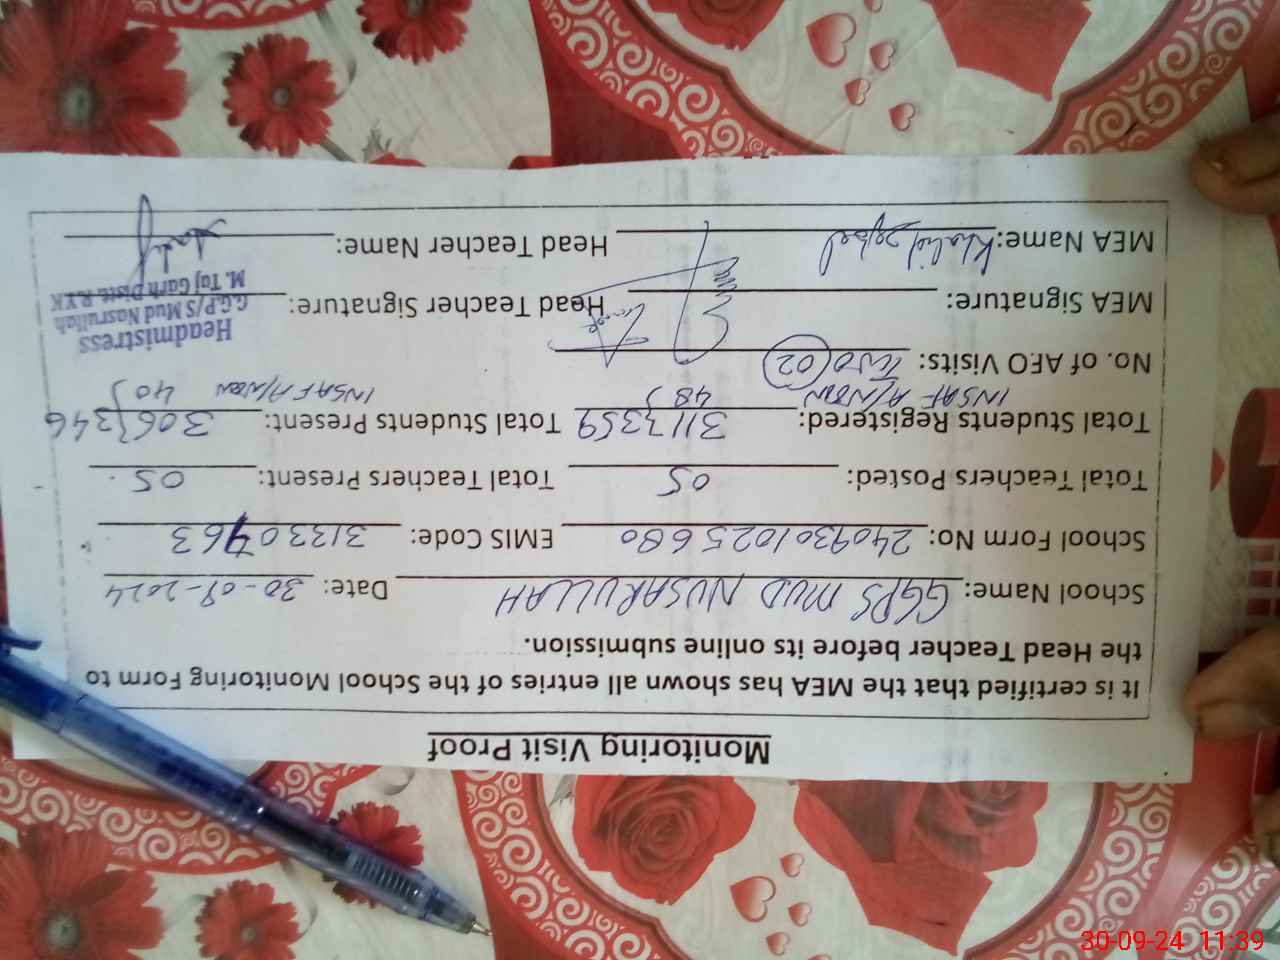 Monitoring Visit Proof
It is certified that the MEA has shown all entries of the School Monitoring Form to
the Head Teacher before its online submission.
School Name: GGPS MUD NUSARULLAH Date: 30-09-2024
School Form No: 2409301025680 EMIS Code: 31330463
Total Teachers Posted: 05 Total Teachers Present: 05
Total Students Registered: 311} 359 Total Students Present: 306} 346
INSAF A/NOON 48} INSAF A/NOON 40}
No. of AEO Visits: Two (02)
MEA Signature: Head Teacher Signature:
Headmistress
G.G.P/S Mud Nasrullah
M. Taj Garh Distt. R.Y.K
MEA Name: Khalid Head Teacher Name:
30-09-24 11:39